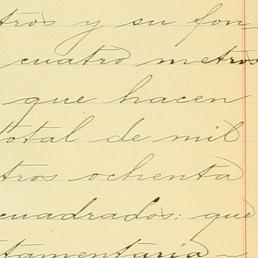 tros y su fon-
cuatro metros
que hacen
total de mil
tros ochenta
cuadrados: que
tamentaria -